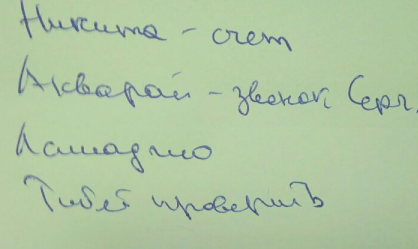 Никита - счет
Акварай - звонок Серг.
Тибет проверить